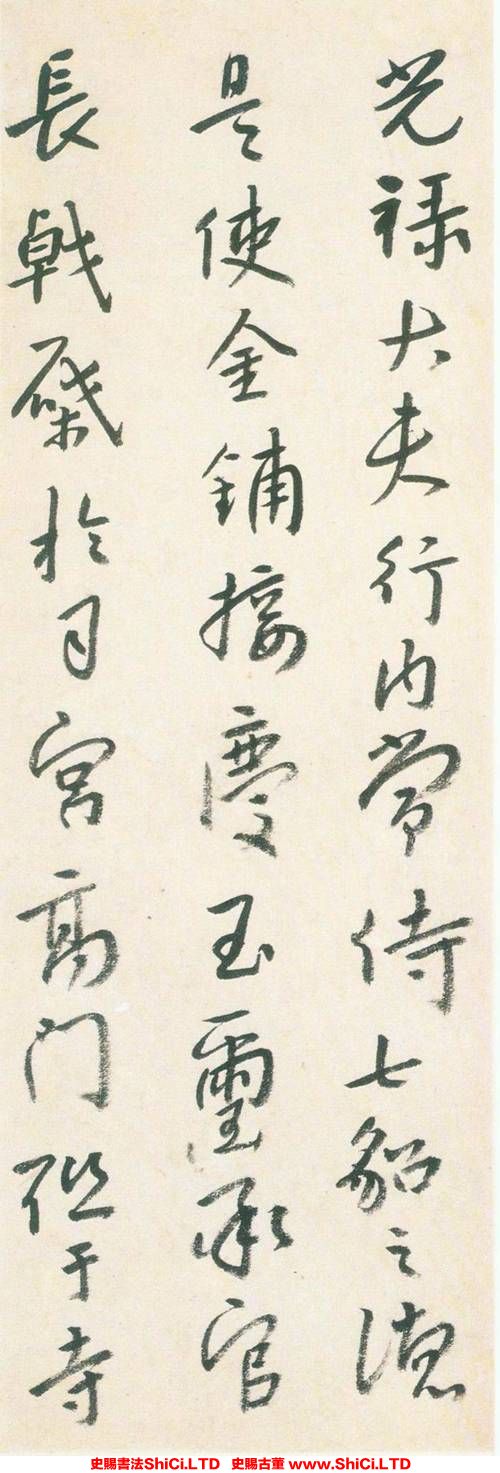 光祿大夫行內常侍七貂之德
是使金鋪接慶玉璽承官
長戟棨於司宮高門 于寺
史賜書法ShiCi.LTD 史賜古董 www.ShiCi.LTD